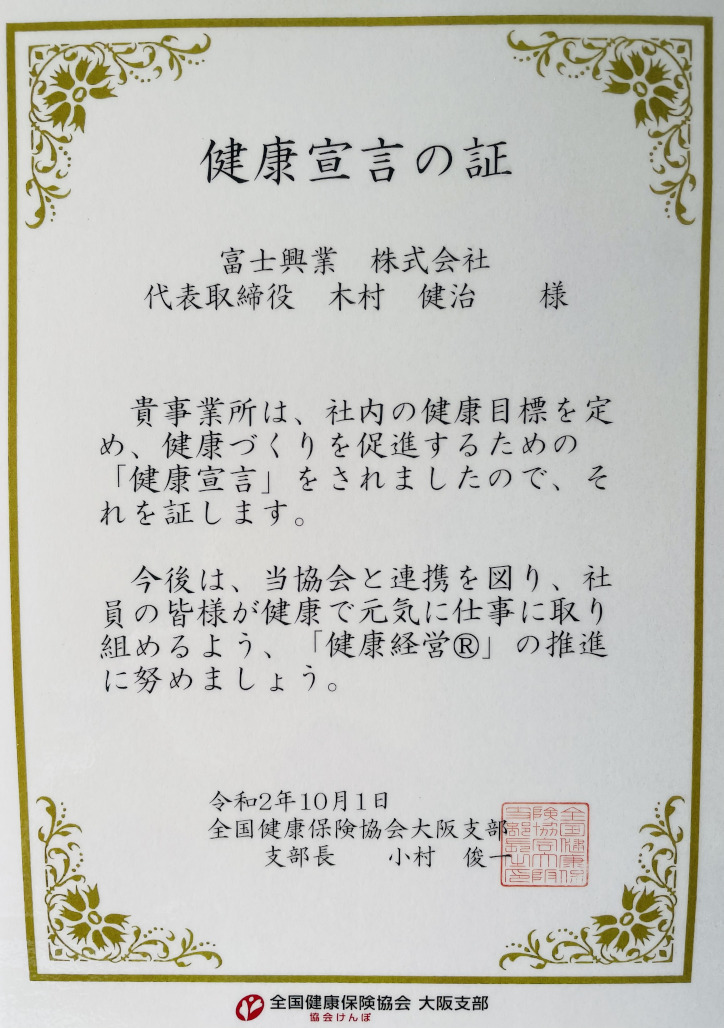 健康宣言の証
富士興業　株式会社
代表取締役　木村　健治　　様
貴事業所は、社内の健康目標を定
め、健康づくりを促進するための
「健康宣言」をされましたので、そ
れを証します。
今後は、当協会と連携を図り、社
員の皆様が健康で元気に仕事に取り
組めるよう、「健康経営®」の推進
に努めましょう。
令和2年10月1日
全国健康保険協会大阪支部
支部長　　小村　俊一
全国健康保険協会 大阪支部
協会けんぽ